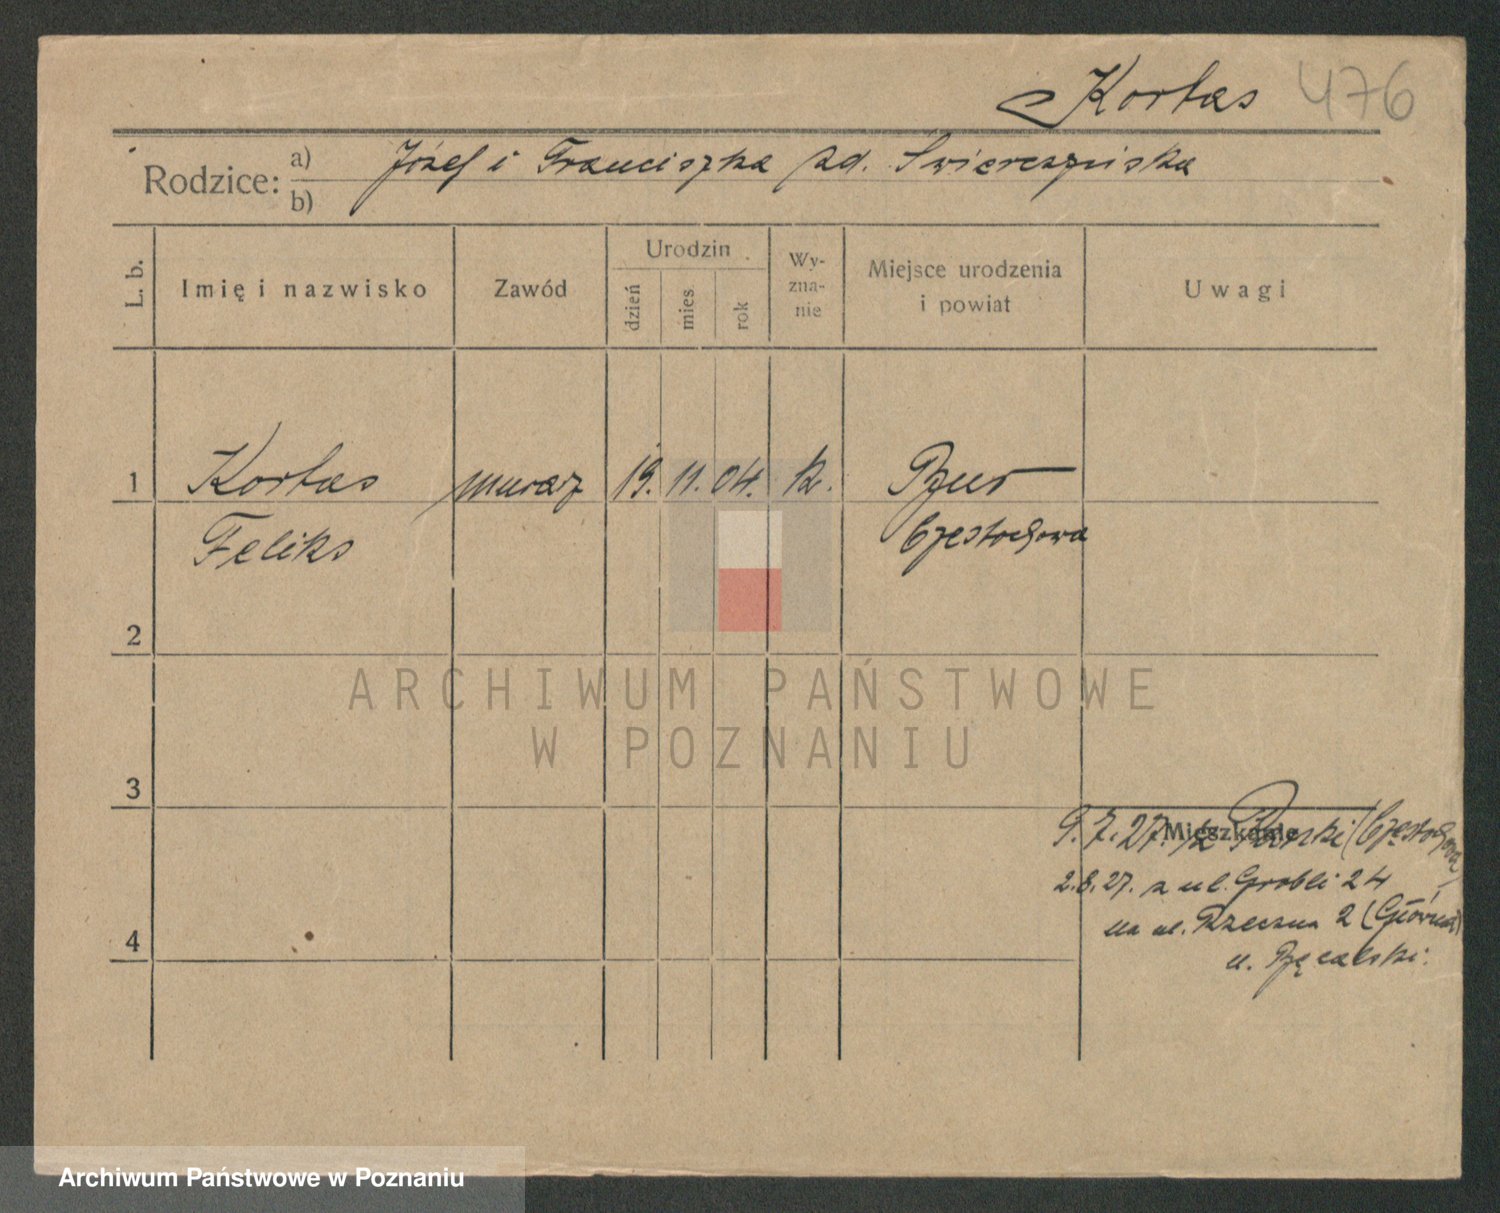 Kortas 476
Rodzice: a) Józef i Franciszka zd. Świerczyńska
b)
L. b. Imię i nazwisko Zawód Urodzin dzień mies. rok Wyznanie Miejsce urodzenia i powiat Uwagi
1 Kortas murarz 19. 11. 04. k.
Feliks Częstochowa
2
ARCHIWUM PAŃSTWOWE
W POZNANIU
3
Mieszkanie
9.7.27. z (Częstochowa)
2.8.27. z ul. Grobli 24
4 na ul. Rzeczna 2 (Główna)
u.
Archiwum Państwowe w Poznaniu